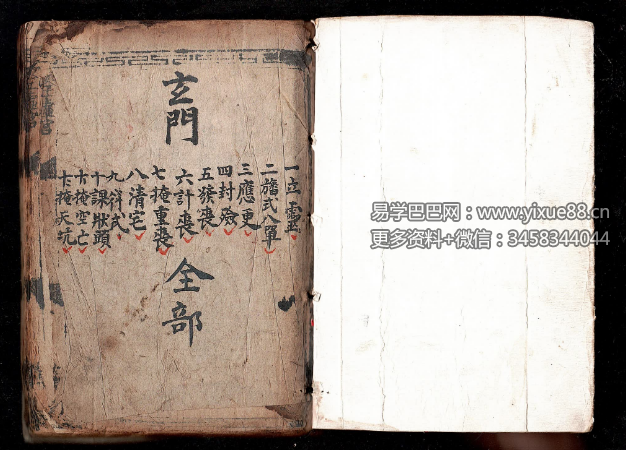 玄門
一立靈
二旛式八單
三應更
四封殮
五發喪
六計喪
七掩重喪
八清宅
九祥式
十課狀頭
十掩空亡
十掩天坑
全部
易学巴巴网：www.yixue88.cn
更多资料+微信：3458344044